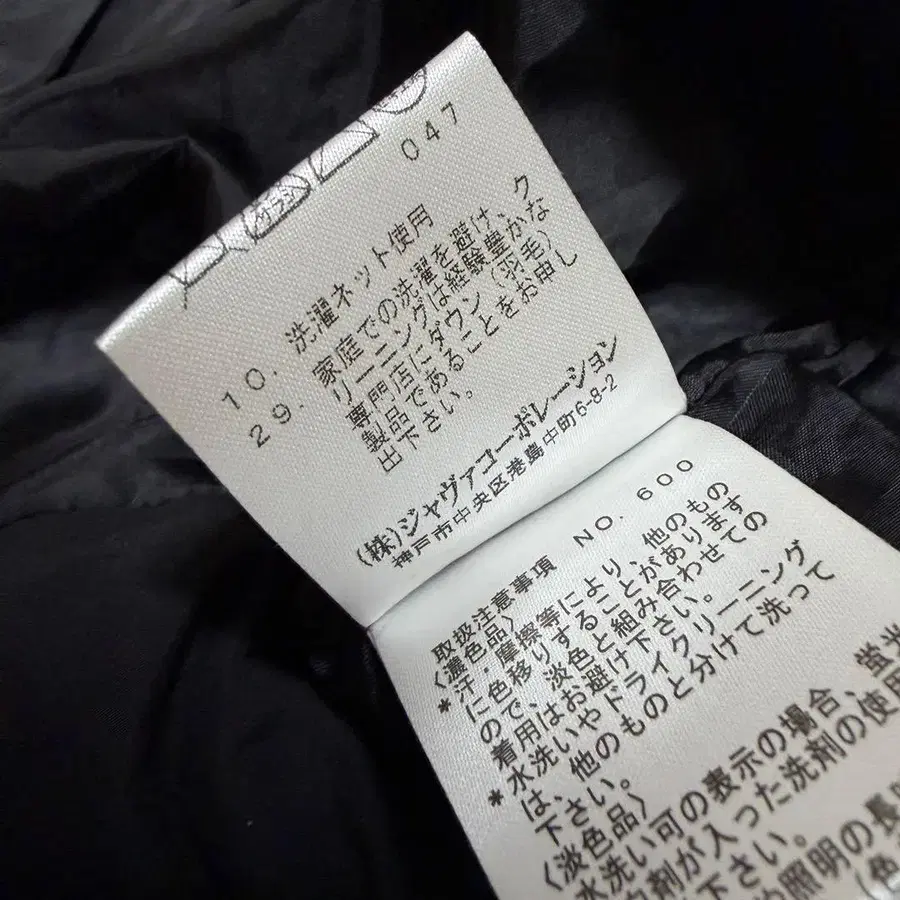 エンソサラシ
047
10. 洗濯ネット使用
29. 家庭での洗濯を避け、ク
リーニングは経験豊かな
専門店にダウン(羽毛)
製品であることをお申し
出下さい。
(株)ジャヴァコーポレーション
神戸市中央区港島中町6-8-2
取扱注意事項 NO. 600
〈濃色品〉
*汗・摩擦等により、他のもの
に色移りすることがあります
ので、淡色と組み合わせての
着用はお避け下さい。
*水洗いやドライクリーニング
は、他のものと分けて洗って
下さい。
〈淡色品〉
水洗い可の表示の場合、蛍光
白剤が入った洗剤の使用
下さい。
照明の長
(色